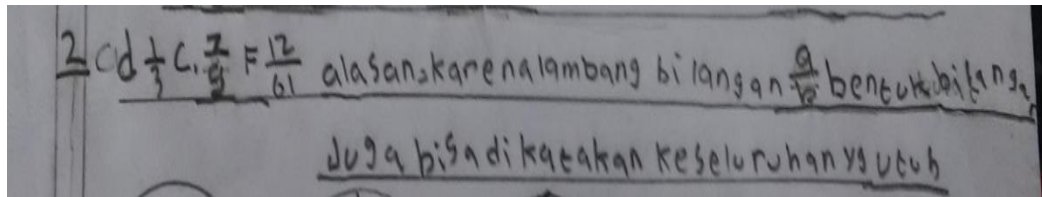 2 Cd 1/3 C. 7/9 F 12/61 alasan, karena lambang bilangan a/b bentuk bilangan
Juga bisa dikatakan keseluruhan yg utuh